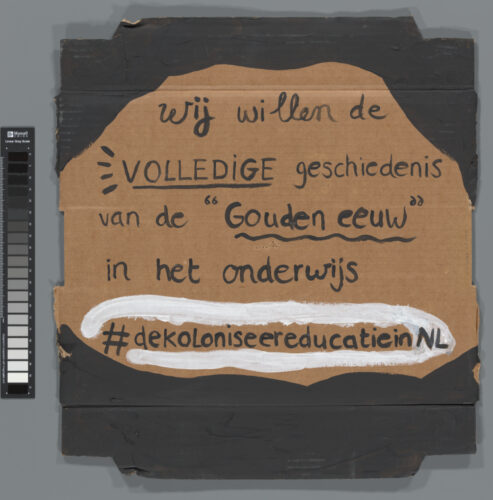 wij willen de
VOLLEDiGE geschiedenis
van de "Gouden eeuw"
in het onderwijs
#dekoloniseereducatieinNL